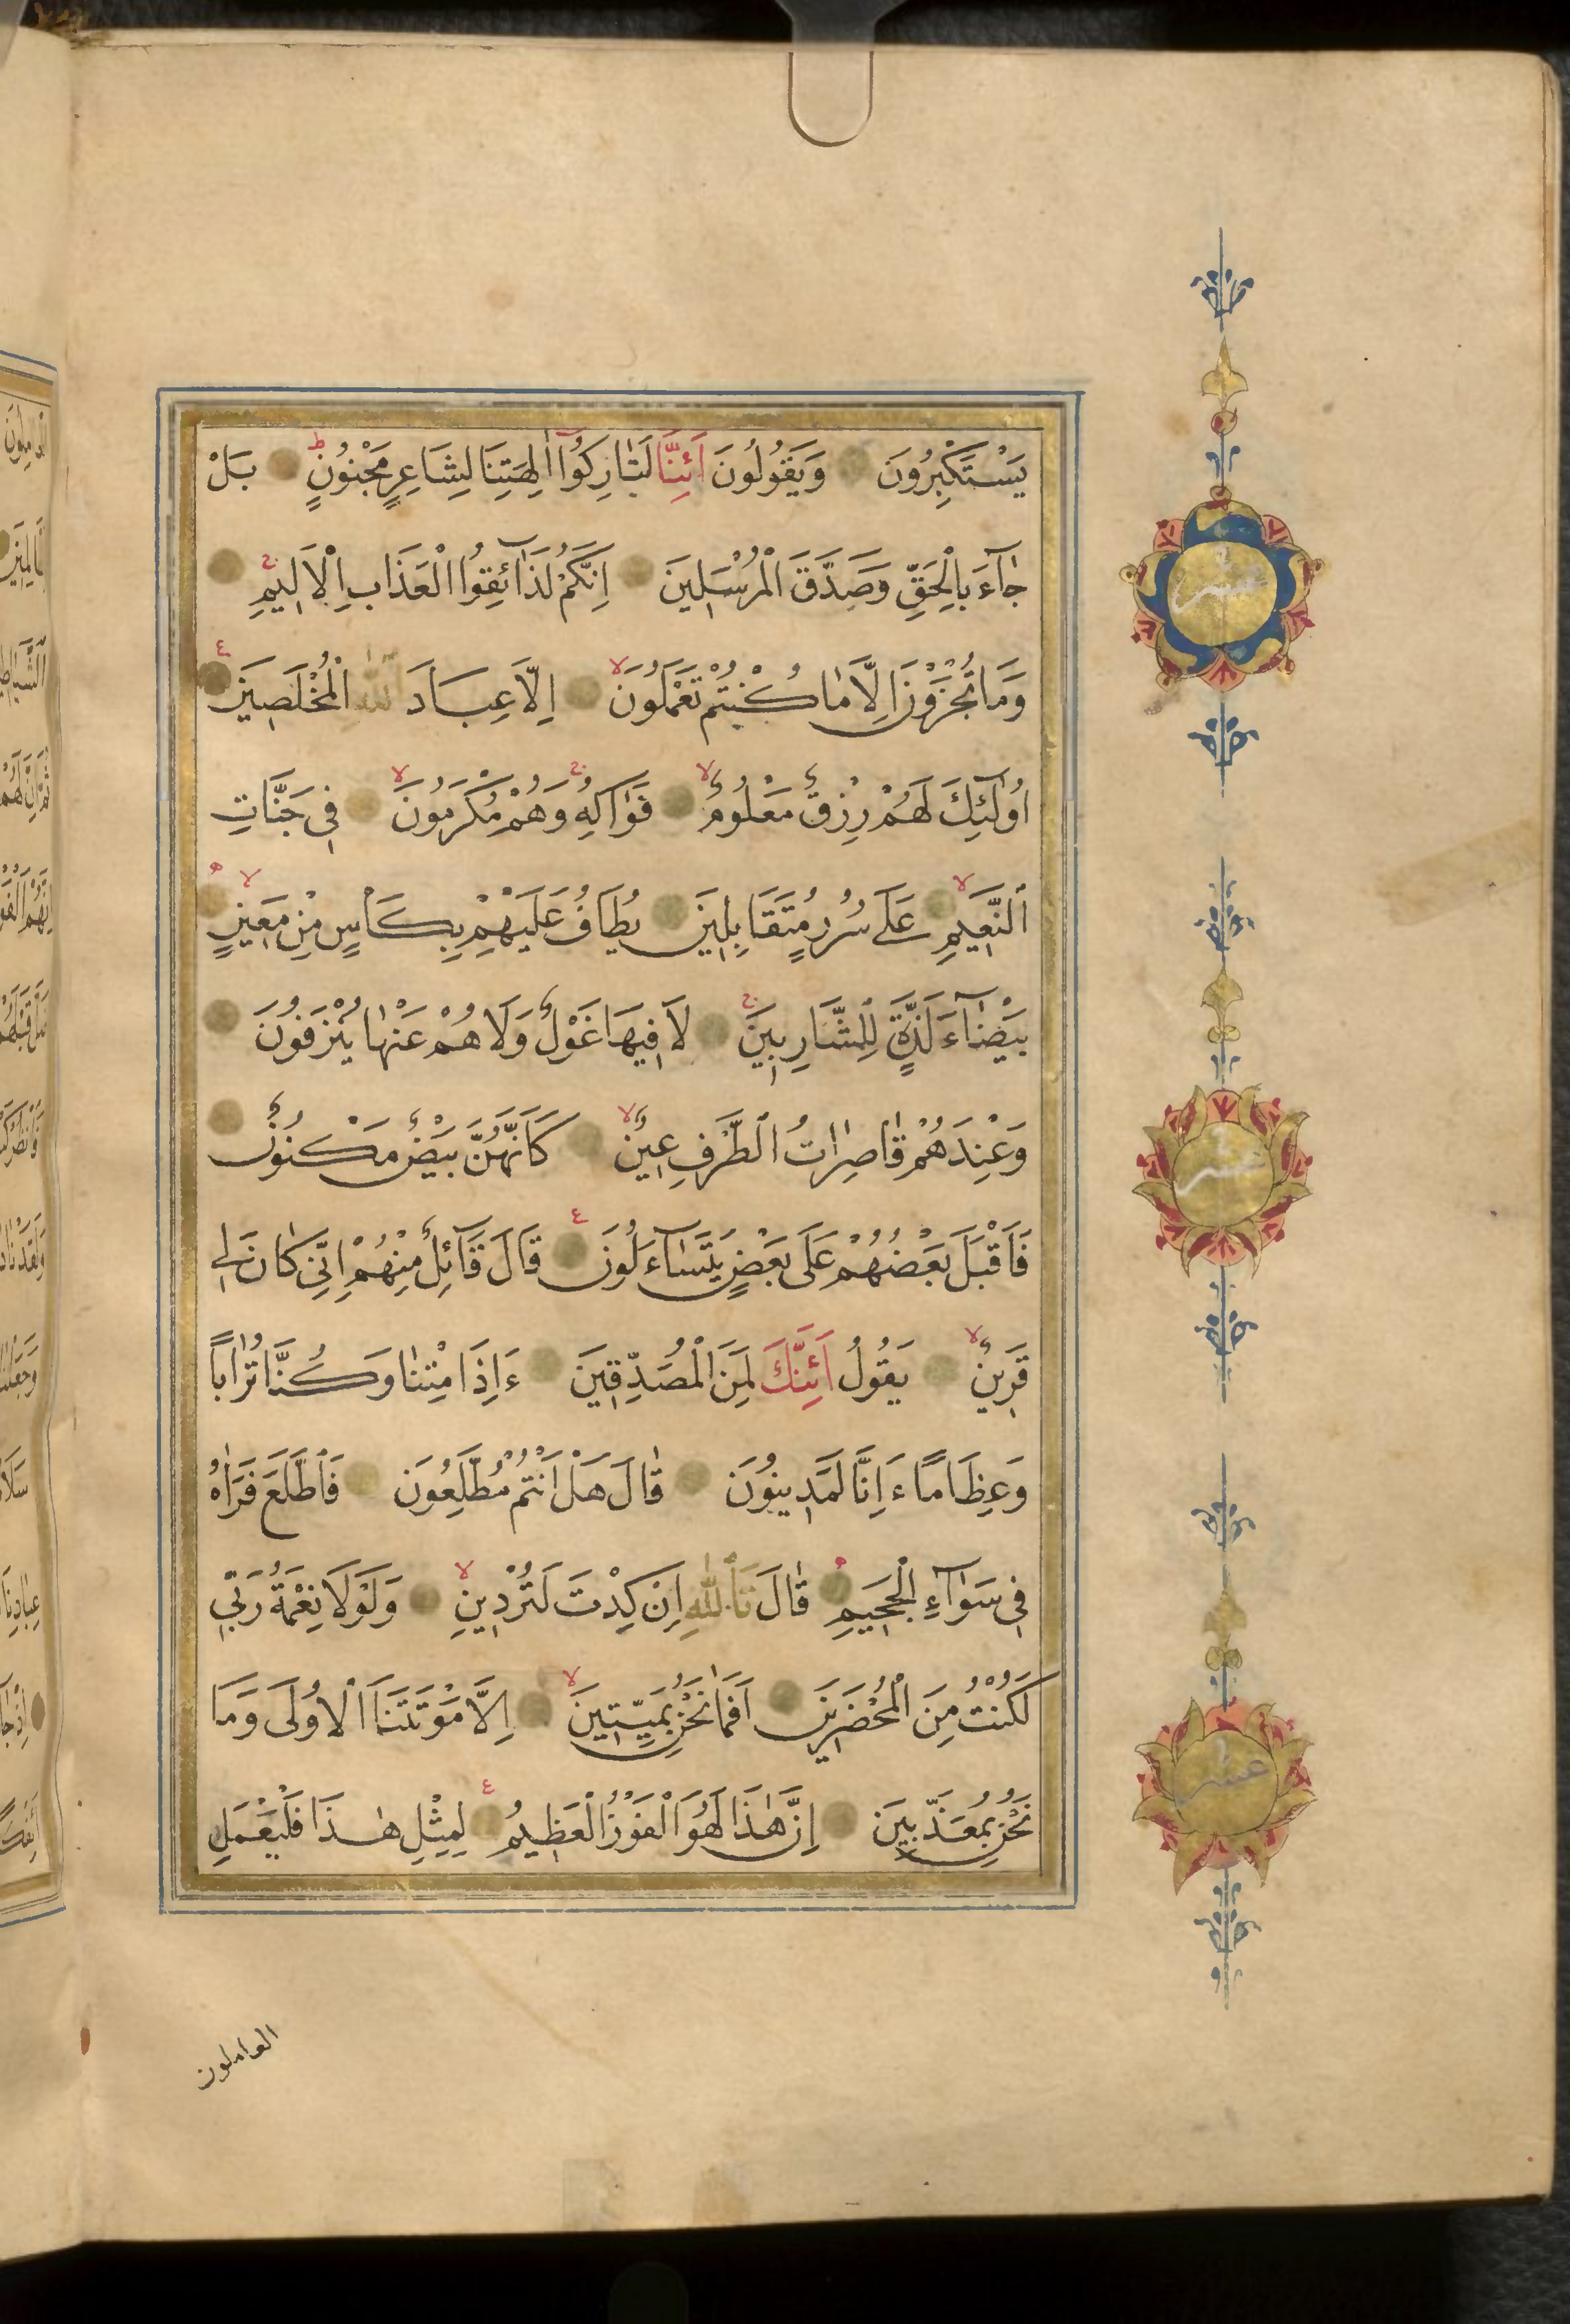 يَسْتَكْبِرُونَ وَيَقُولُونَ اَئِنَّا لَتَارِكُوٓا اٰلِهَتِنَا لِشَاعِرٍ مَجْنُونٍ ط بَلْ
جَآءَ بِالْحَقِّ وَصَدَّقَ الْمُرْسَلِينَ اِنَّكُمْ لَذَآئِقُوا الْعَذَابِ الْاَلِيمِ ج
وَمَا تُجْزَوْنَ اِلَّا مَا كُنْتُمْ تَعْمَلُونَ لا اِلَّا عِبَادَ اللّٰهِ الْمُخْلَصِينَ ع
اُولٰٓئِكَ لَهُمْ رِزْقٌ مَعْلُومٌ لا فَوَاكِهُ ج وَهُمْ مُكْرَمُونَ لا فِي جَنَّاتِ
النَّعِيمِ لا عَلَى سُرُرٍ مُتَقَابِلِينَ يُطَافُ عَلَيْهِمْ بِكَأْسٍ مِنْ مَعِينٍ لا ه
بَيْضَآءَ لَذَّةٍ لِلشَّارِبِينَ ج لَا فِيهَا غَوْلٌ وَلَا هُمْ عَنْهَا يُنْزَفُونَ
وَعِنْدَهُمْ قَاصِرَاتُ الطَّرْفِ عِينٌ لا كَاَنَّهُنَّ بَيْضٌ مَكْنُونٌ
فَاَقْبَلَ بَعْضُهُمْ عَلَى بَعْضٍ يَتَسَآءَلُونَ ع قَالَ قَآئِلٌ مِنْهُمْ اِنِّي كَانَ لِي
قَرِينٌ لا يَقُولُ اَئِنَّكَ لَمِنَ الْمُصَدِّقِينَ ءَاِذَا مِتْنَا وَكُنَّا تُرَاباً
وَعِظَاماً ءَاِنَّا لَمَدِينُونَ قَالَ هَلْ اَنْتُمْ مُطَّلِعُونَ فَاطَّلَعَ فَرَاٰهُ
فِي سَوَآءِ الْجَحِيمِ ه قَالَ تَاللّٰهِ اِنْ كِدْتَ لَتُرْدِينِ لا وَلَوْلَا نِعْمَةُ رَبِّي
لَكُنْتُ مِنَ الْمُحْضَرِينَ اَفَمَا نَحْنُ بِمَيِّتِينَ لا اِلَّا مَوْتَتَنَا الْاُولَى وَمَا
نَحْنُ بِمُعَذَّبِينَ اِنَّ هٰذَا لَهُوَ الْفَوْزُ الْعَظِيمُ ع لِمِثْلِ هٰذَا فَلْيَعْمَلِ
العاملون
عشر
عشر
عشر